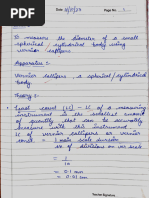 Date 11/8/24 Page No. 2
Aim :
To measure the diameter of a small
spherical / cylindrical body using
vernier callipers
Apparatus :
Vernier callipers, a spherical / cylindrical
body
Theory :
• Least count (LC) - LC of a measuring
instrument is the smallest amount
of quantity that can be accurately
measure with this instrument.
LC of vernier callipers or vernier
constt = 1 main scale division
no. of divisions on ver. scale
= 1
10
= 0.1 mm
= 0.01 cm
Teacher Signature